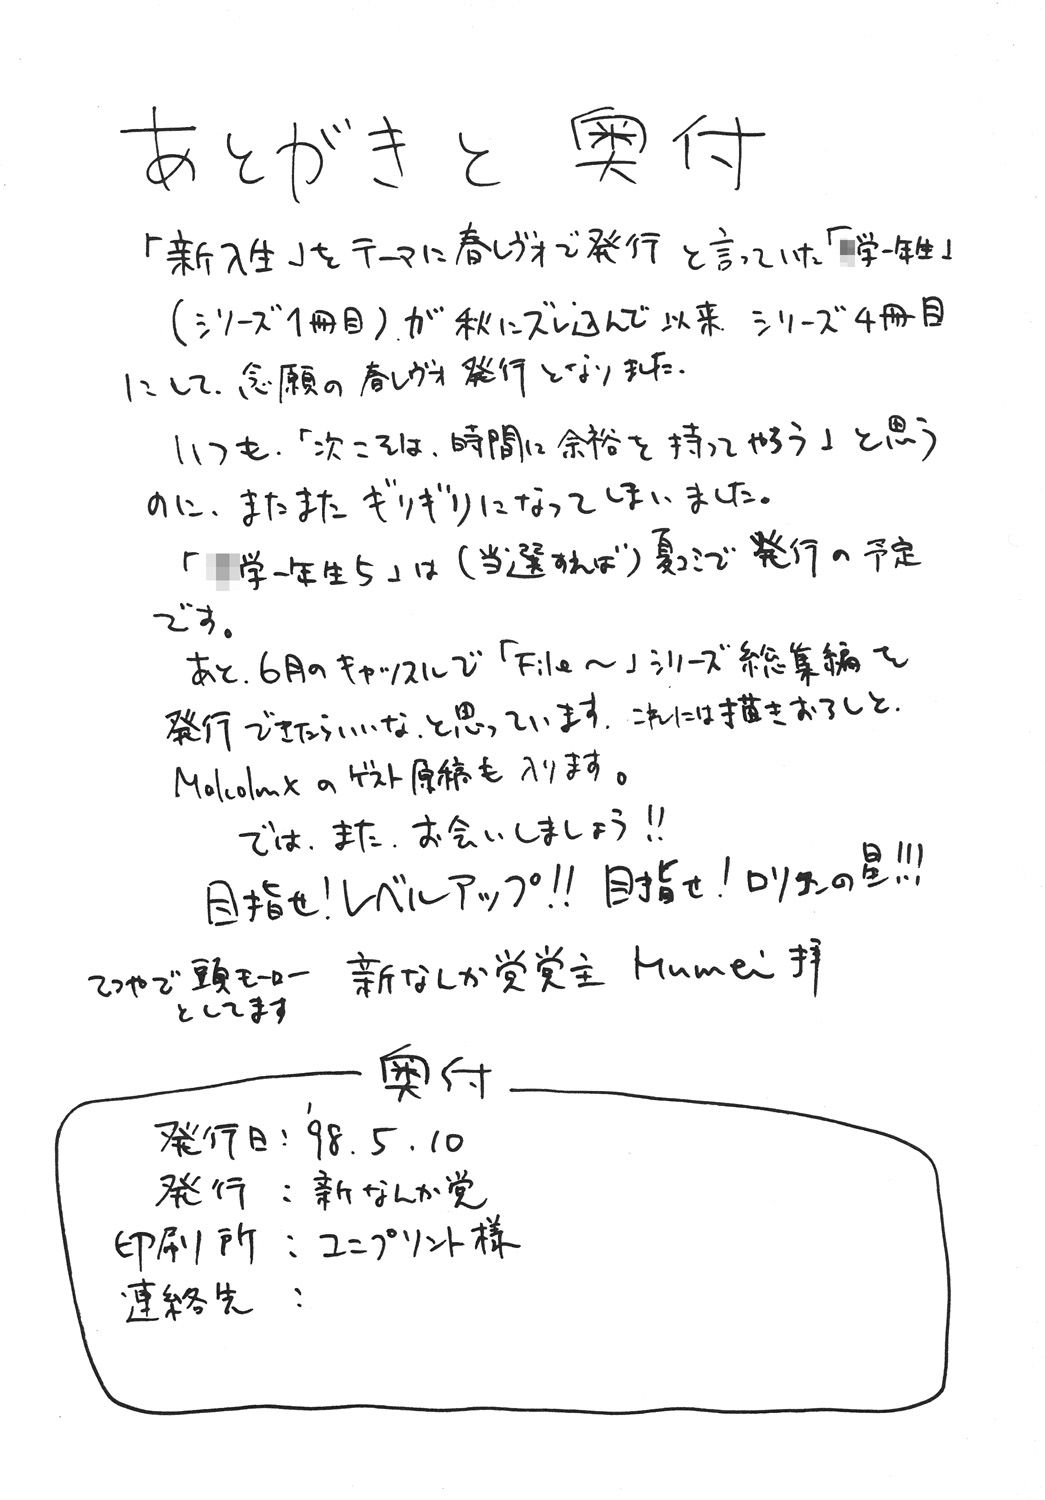 あとがきと奥付
「新入生」をテーマに春レヴォで発行と言っていた「学一年生」
(シリーズ1冊目)が秋にズレ込んで以来、シリーズ4冊目
にして、念願の春レヴォ発行となりました。
いつも、「次こそは、時間に余裕を持ってやろう」と思う
のに、またまたギリギリになってしまいました。
「学一年生5」は(当選すれば)夏コミで発行の予定
です。
あと、6月のキャッスルで「File〜」シリーズ総集編を
発行できたらいいな、と思っています。これには描きおろしと、
Molcolmxのゲスト原稿も入ります。
では、また、お会いしましょう!!
目指せ!レベルアップ!! 目指せ!ロリ の星!!!
てつやで頭モーロー
としてます
新なんか党党主 Mumei拝
奥付
発行日:'98.5.10
発行:新なんか党
印刷所:ユニプリント様
連絡先: